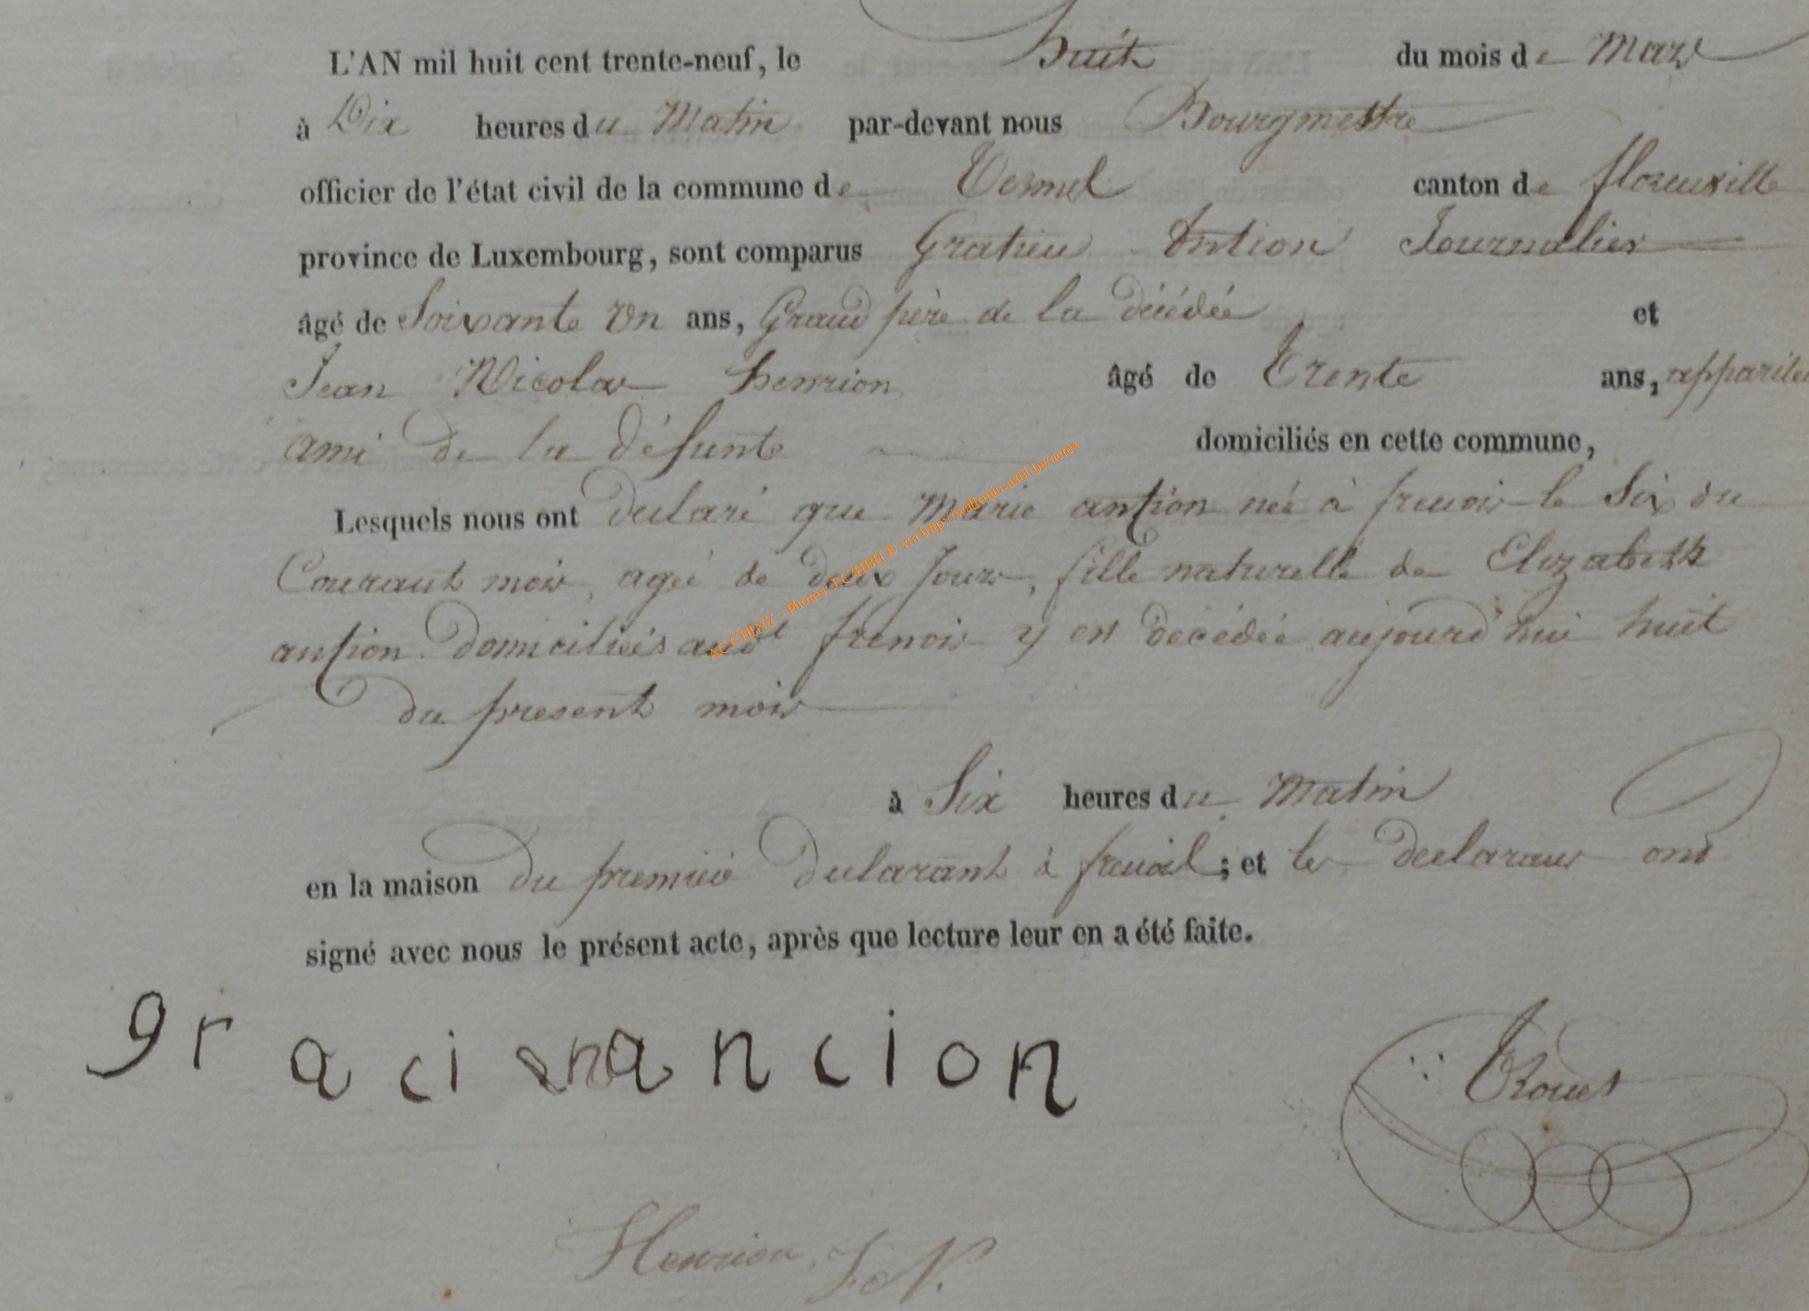 L'AN mil huit cent trente-neuf, le huit du mois de Mars
à Dix heures du Matin par-devant nous Bourgmestre
officier de l'état civil de la commune de Termel canton de florenville
province de Luxembourg, sont comparus Gratien Antion Journalier
âgé de Soixante Un ans, Grand père de la décédée et
Jean Nicolas henrion âgé de Trente ans,
ami de la défunte domiciliés en cette commune,
Lesquels nous ont declaré que Marie antion née à frenois le Six du
Courant mois, agée de deux Jours, fille naturelle de Elizabeth
antion domiciliés audt frenois y est décédée aujourd'hui huit
du present mois
à Six heures du Matin
en la maison du premier declarant à ; et les declarans ont
signé avec nous le présent acte, après que lecture leur en a été faite.
graci ancion
Henrion J. N.